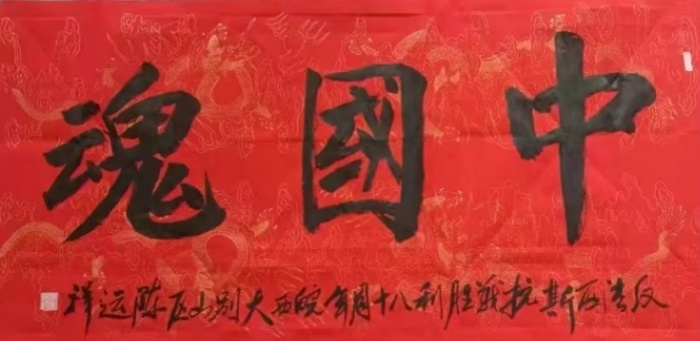 中國魂
反法西斯抗战胜利八十周年皖西大别山区陈运祥